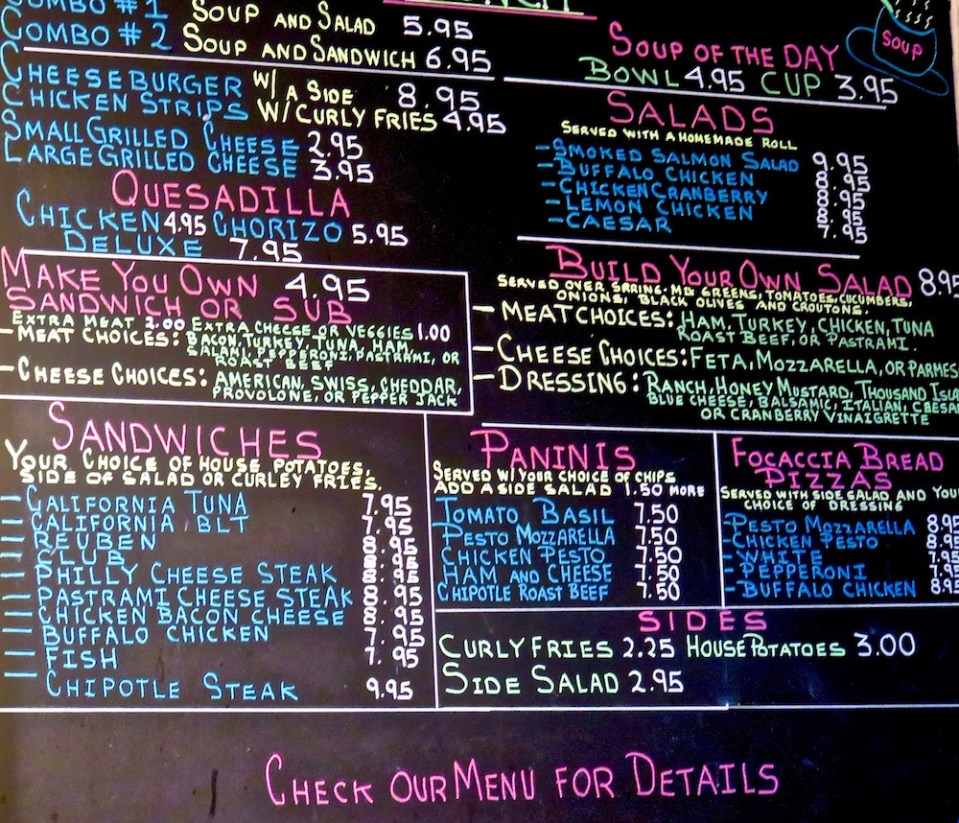 COMBO #1 SOUP AND SALAD 5.95
COMBO #2 SOUP AND SANDWICH 6.95
CHEESEBURGER W/ A SIDE 8.95
CHICKEN STRIPS W/CURLY FRIES 4.95
SMALL GRILLED CHEESE 2.95
LARGE GRILLED CHEESE 3.95
QUESADILLA
CHICKEN 4.95 CHORIZO 5.95
DELUXE 7.95
MAKE YOU OWN 4.95
SANDWICH OR SUB
EXTRA MEAT 2.00 EXTRA CHEESE OR VEGGIES 1.00
- MEAT CHOICES: BACON, TURKEY, TUNA, HAM
SALAMI, PEPPERONI, PASTRAMI, OR
ROAST BEEF
- CHEESE CHOICES: AMERICAN, SWISS, CHEDDAR,
PROVOLONE, OR PEPPER JACK
SOUP OF THE DAY
SOUP
BOWL 4.95 CUP 3.95
SALADS
SERVED WITH A HOMEMADE ROLL
- SMOKED SALMON SALAD 9.95
- BUFFALO CHICKEN 8.95
- CHICKEN CRANBERRY 8.95
- LEMON CHICKEN 8.95
- CAESAR 7.95
BUILD YOUR OWN SALAD 8.95
SERVED OVER SPRING MIX GREENS, TOMATOES, CUCUMBERS,
ONIONS, BLACK OLIVES AND CROUTONS.
- MEAT CHOICES: HAM, TURKEY, CHICKEN, TUNA
ROAST BEEF, OR PASTRAMI.
- CHEESE CHOICES: FETA, MOZZARELLA, OR PARMES
- DRESSING: RANCH, HONEY MUSTARD, THOUSAND ISLA
BLUE CHEESE, BALSAMIC, ITALIAN, CAESAR
OR CRANBERRY VINAIGRETTE
SANDWICHES
YOUR CHOICE OF HOUSE POTATOES,
SIDE OF SALAD OR CURLEY FRIES.
- CALIFORNIA TUNA 7.95
- CALIFORNIA BLT 7.95
- REUBEN 8.95
- CLUB 8.95
- PHILLY CHEESE STEAK 8.95
- PASTRAMI CHEESE STEAK 8.95
- CHICKEN BACON CHEESE 8.95
- BUFFALO CHICKEN 7.95
- FISH 7.95
- CHIPOTLE STEAK 9.95
PANINIS
SERVED W/ YOUR CHOICE OF CHIPS
ADD A SIDE SALAD 1.50 MORE
TOMATO BASIL 7.50
PESTO MOZZARELLA 7.50
CHICKEN PESTO 7.50
HAM AND CHEESE 7.50
CHIPOTLE ROAST BEEF 7.50
FOCACCIA BREAD
PIZZAS
SERVED WITH SIDE SALAD AND YOUR
CHOICE OF DRESSING
- PESTO MOZZARELLA 8.95
- CHICKEN PESTO 8.95
- WHITE 7.95
- PEPPERONI 7.95
- BUFFALO CHICKEN 8.95
SIDES
CURLY FRIES 2.25 HOUSE POTATOES 3.00
SIDE SALAD 2.95
CHECK OUR MENU FOR DETAILS